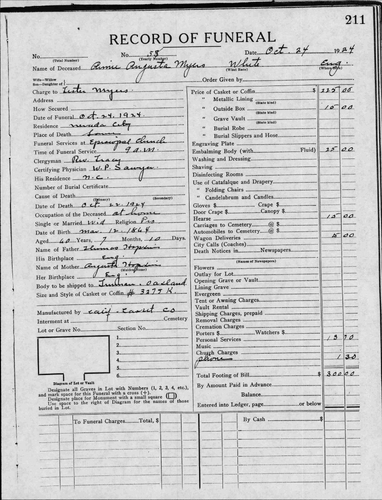 211
RECORD OF FUNERAL
No. (Total Number) No. 58 (Yearly Number) Date Oct. 24 1924
Name of Deceased Annie Augusta Myers White Eng.
Wife—Widow
Order Given by
Charge to Lester Myers
Address
How Secured
Date of Funeral Oct 24, 1924
Residence Nevada City
Place of Death
Funeral Services at Episcopal Church
Time of Funeral Service 9 A.M.
Clergyman Rev. Tracy
Certifying Physician W.P. Sawyer
His Residence N.C.
Number of Burial Certificate
Cause of Death
Date of Death Oct 22, 1924
Occupation of the Deceased at home
Single or Married Wid Religion Pro
Date of Birth Mar. 12, 1864
Aged 60 Years, 7 Months, 10 Days
Name of Father Thomas Hopkins
His Birthplace Eng
Name of Mother Augusta Hopkins
Her Birthplace Eng.
Body to be shipped to Oakland
Size and Style of Casket or Coffin # 3275
Manufactured by Calif. Casket Co
Interment at Cemetery
Lot or Grave No. Section No.
1
2
3
4
5
6
7
Diagram of Lot or Vault
Designate all Graves in Lot with Numbers (1, 2, 3, 4, etc.), and mark space for this Funeral with a cross (+).
Designate place for Monument with a small square
Use space to the right of Diagram for the names of those buried in Lot.
Price of Casket or Coffin $
" Metallic Lining
" Outside Box 15.00
" Grave Vault
" Burial Robe
" Burial Slippers and Hose
Engraving Plate
Embalming Body (with Fluid) 25.00
Washing and Dressing
Shaving
Disinfecting Rooms
Use of Catafalque and Drapery
" Folding Chairs
" Candelabrum and Candles
Door Crape $ Canopy $
Hearse 15.00
Carriages to Cemetery
Automobiles to Cemetery
Wagon Deliveries
City Calls (Coaches)
Death Notices in Newspapers
(Names of Newspapers)
Flowers
Outlay for Lot
Opening Grave or Vault
Lining Grave
Evergreen
Tent or Awning Charges
Vault Rental
Shipping Charges, prepaid
Removal Charges
Cremation Charges
Porters $ Watchers $
Personal Services
Music
Church Charges
phone 1.30
Total Footing of Bill $ 300.00
By Amount Paid in Advance
Balance
Entered into Ledger, page or below
To Funeral Charges Total, $
By Cash $